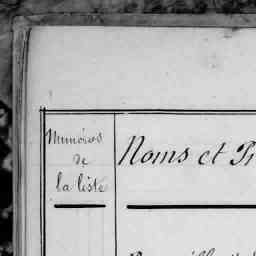 Numéros
de
la liste
Noms et Pr